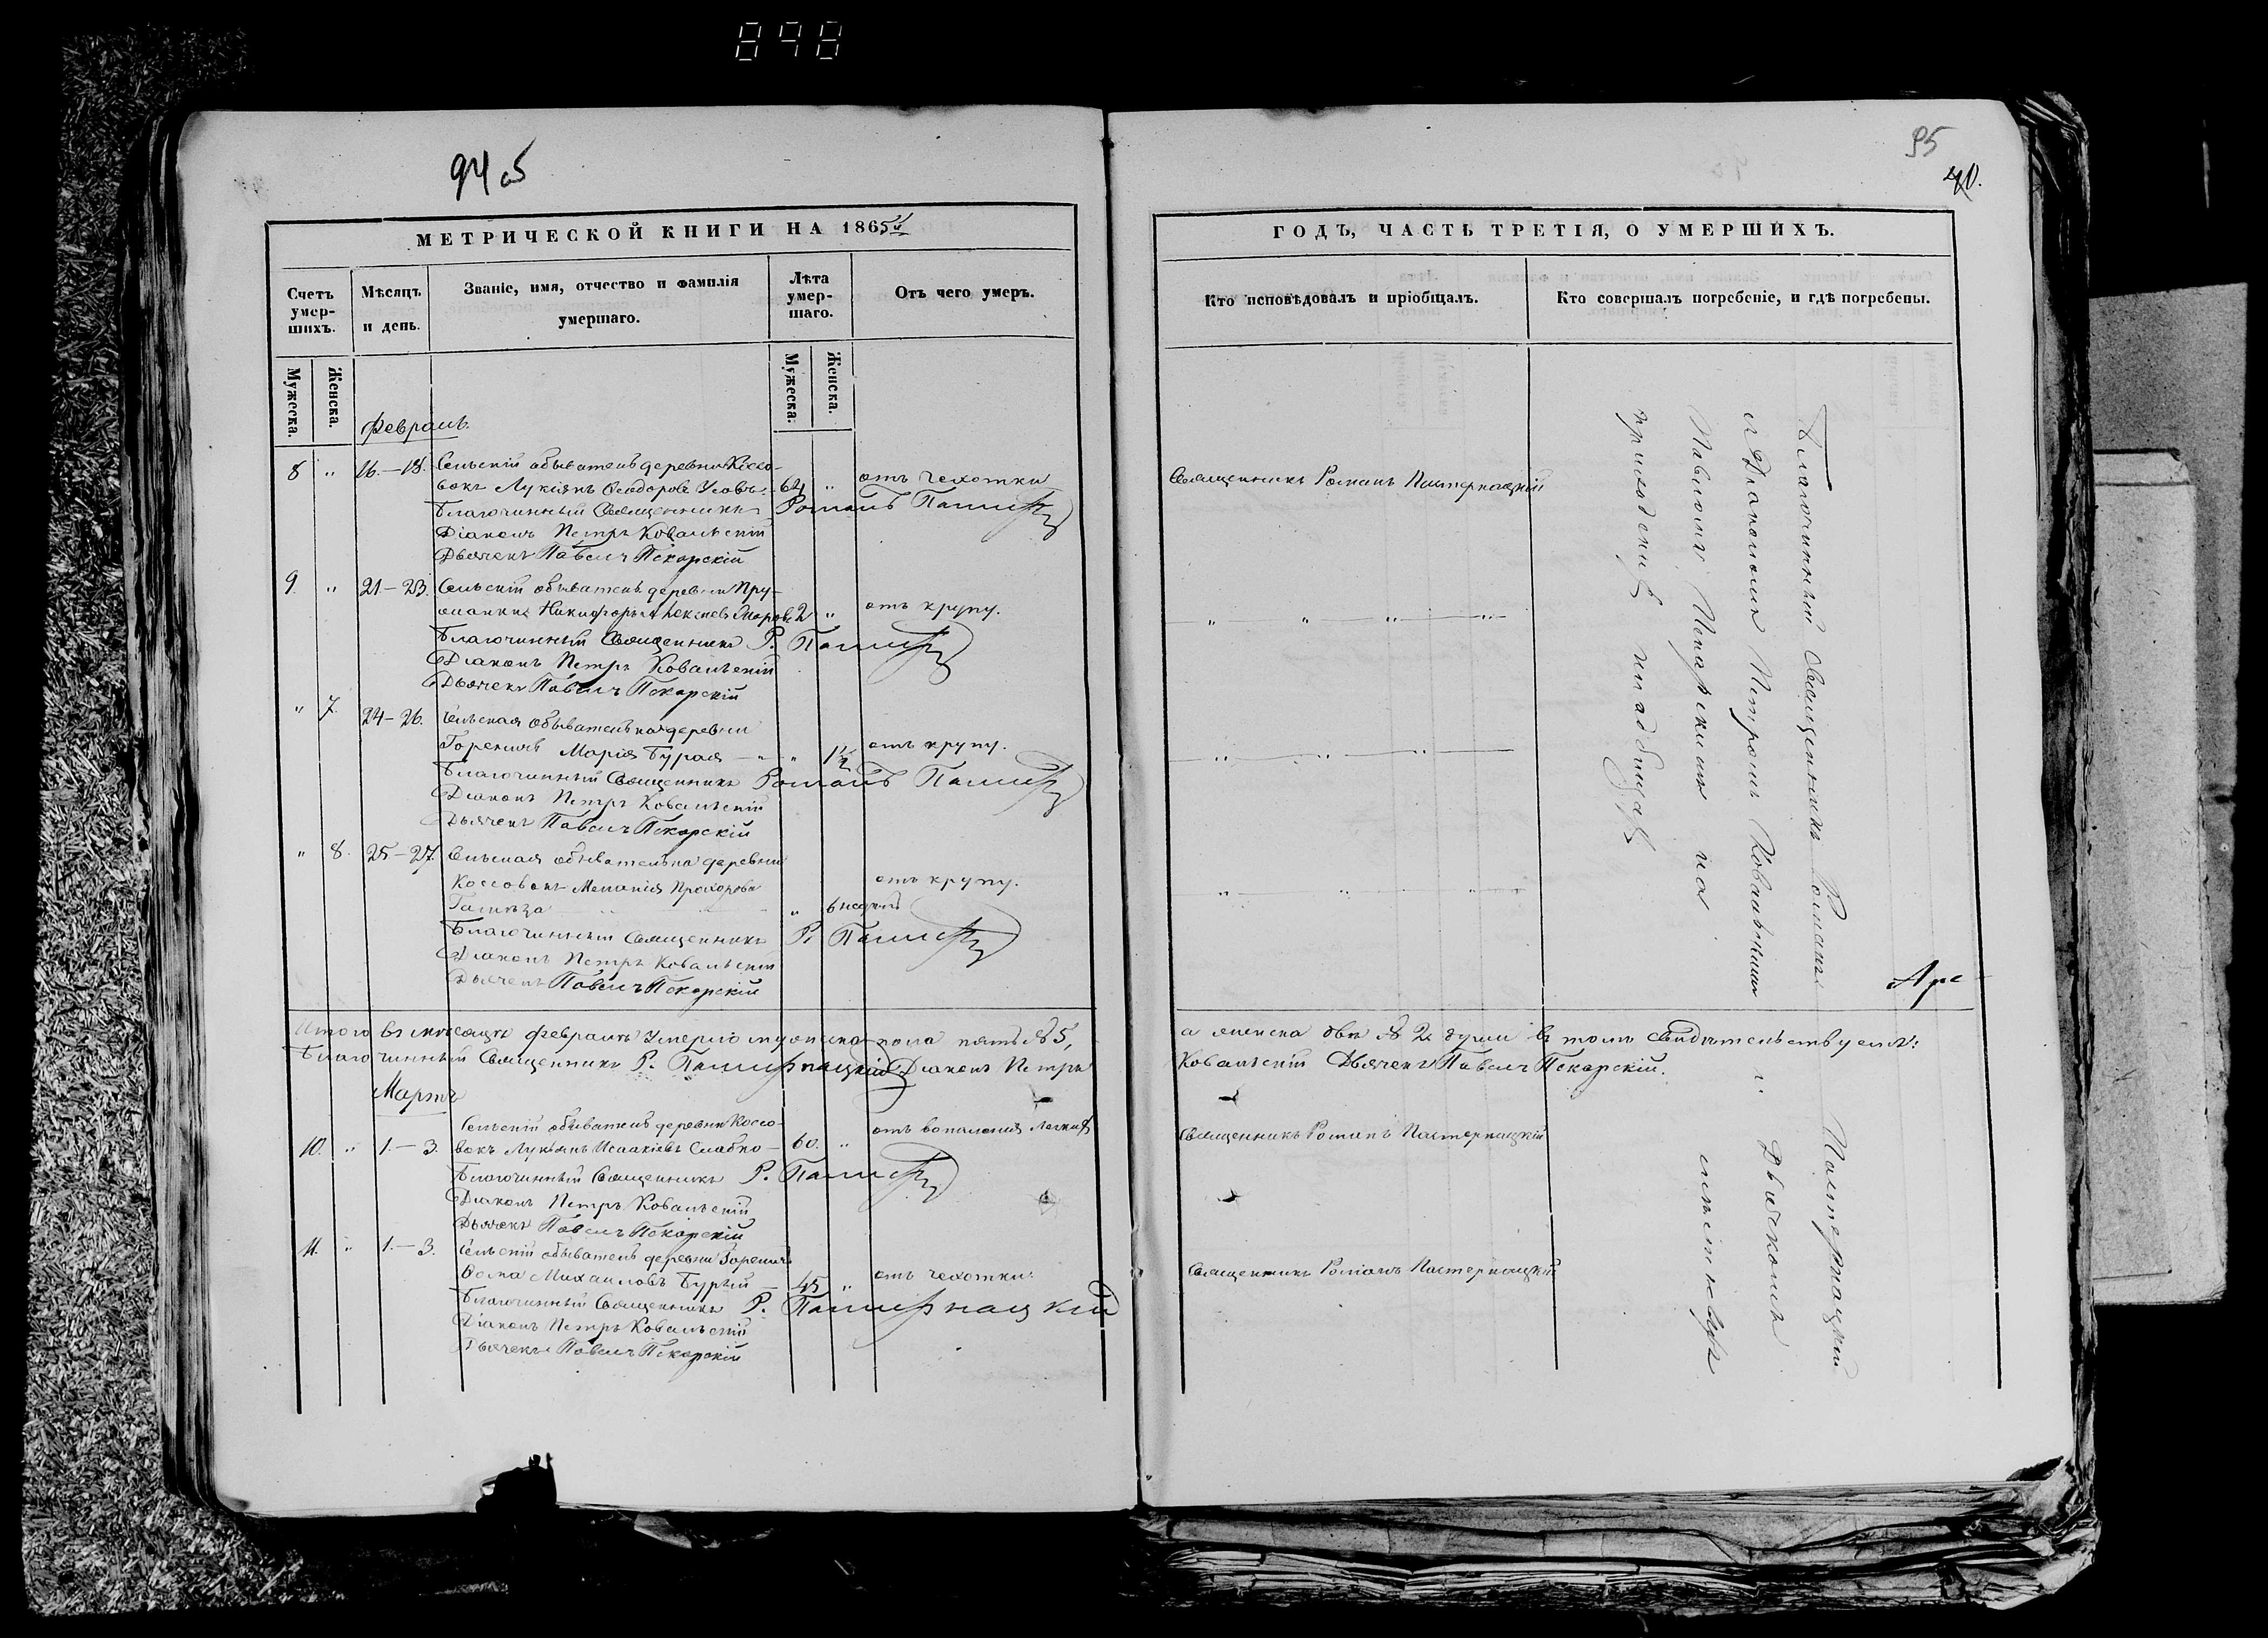 898
94 об
МЕТРИЧЕСКОЙ КНИГИ НА 1865й
Счетъ умер-шихъ.
Мѣсяцъ и день.
Званіе, имя, отчество и фамилія умершаго.
Лѣта умер-шаго.
Отъ чего умеръ.
Мужеска.
Женска.
Мужеска.
Женска.
Февраль.
8 " 16.—18. Сельскій обыватель деревни Коссо-
вокъ Лукіянъ Ѳеодоровъ 64 " отъ чехотки
Благочинный Священникъ Романъ
Діаконъ Петръ Ковальскій
Дьячекъ Павелъ Пекарскій
9. " 21—23. Сельскій обыватель деревни
Никифоръ Алексѣевъ 2 " отъ крупу.
Благочинный Священникъ Р.
Діаконъ Петръ Ковальскій
Дьячекъ Павелъ Пекарскій
" 7. 24—26. Сельская обывателька деревни
Гореничъ Марія Бурая — " " 1½ отъ крупу.
Благочинный Священникъ Романъ
Діаконъ Петръ Ковальскій
Дьячекъ Павелъ Пекарскій
" 8. 25—27. Сельская обывателька деревни
Коссовокъ Меланія Прохорова отъ крупу.
" 6 недѣль
Благочинный Священникъ Р.
Діаконъ Петръ Ковальскій
Дьячекъ Павелъ Пекарскій
Итого въ мѣсяцѣ февралѣ умерло мужеска пола пять №5,
Благочинный Священникъ Р. Пастернацкій Діаконъ Петръ
Мартъ
Сельскій обыватель деревни Коссо-
10. " 1.—3. вокъ Лукіянъ Исаакіевъ 60. " отъ вопаленія легкихъ
Благочинный Священникъ Р.
Діаконъ Петръ Ковальскій
Дьячекъ Павелъ Пекарскій
11. " 1.—3. Сельскій обыватель деревни Гореничъ
Ѳома Михаиловъ Бурый — 45 " отъ чехотки.
Благочинный Священникъ Р. Пастернацкій
Діаконъ Петръ Ковальскій
Дьячекъ Павелъ Пекарскій
95
40.
ГОДЪ, ЧАСТЬ ТРЕТІЯ, О УМЕРШИХЪ.
Кто исповѣдовалъ и пріобщалъ.
Кто совершалъ погребеніе, и гдѣ погребены.
Священникъ Романъ Пастернацкій
" " " "
" " " "
" " " "
а женска двѣ №2 души въ томъ свидѣтельствуемъ:
Ковальскій Дьячекъ Павелъ Пекарскій.
Священникъ Романъ Пастернацкій
Священникъ Романъ Пастернацкій
Благочинный Священникъ Романъ Пастернацкій
съ Діакономъ Петромъ Ковальскимъ и Дьячкомъ
Павломъ Пекарскимъ на
приходскомъ кладбищѣ
Арс